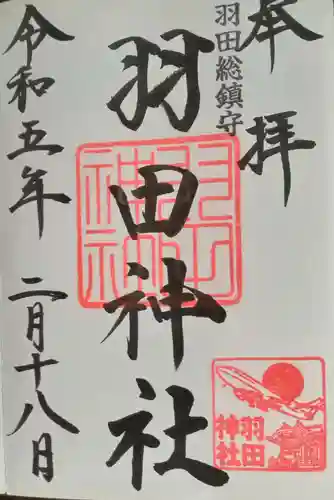 奉拝
羽田総鎮守
羽田神社
羽田神社
令和五年 二月十八日
羽田
神社